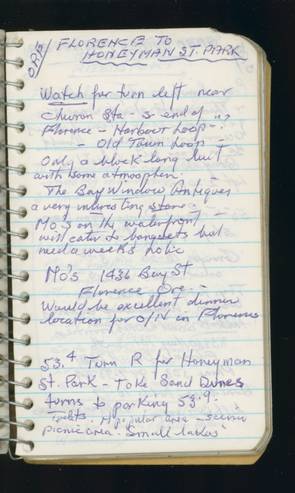 ORE/
FLORENCE TO
HONEYMAN ST. PARK
Watch for turn left near
Chevron Sta - S end of
Florence - Harbour Loop -
- Old Town Loop -
Only a block long but
with some atmosphere.
The Bay Window Antiques
a very interesting store.
Mo's on the waterfront
will cater to banquets but
need a week's notice
Mo's 1436 Bay St
Florence Ore. -
Would be excellent dinner
location for O/N in Florence
53.4 Turn R for Honeyman
St. Park - Take Sand Dunes
turns to parking 53.9.
area - scenic
picnic area. Small lakes